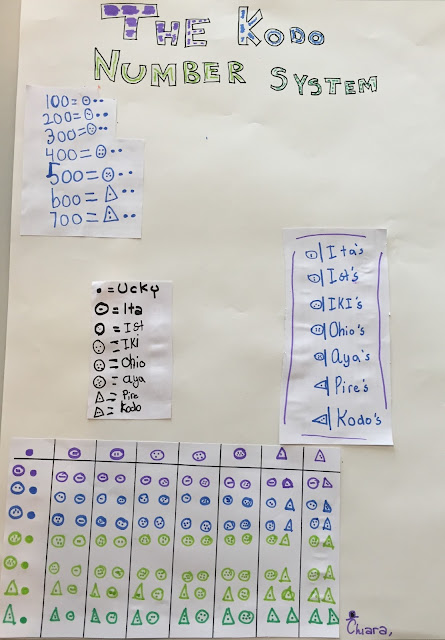 THE KODO
NUMBER SYSTEM
100=
200=
300=
400=
500=
600=
700=
= Ucky
= Ita
= Ist
= IKI
= Ohio
= aya
= Pire
= Kodo
Ita's
Ist's
IKI's
Ohio's
Aya's
Pire's
Kodo's
Chiara,